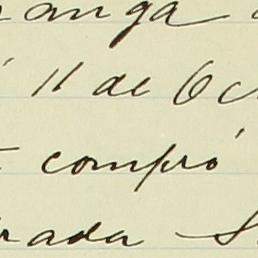 anga
11 de Oc
compró
rada S